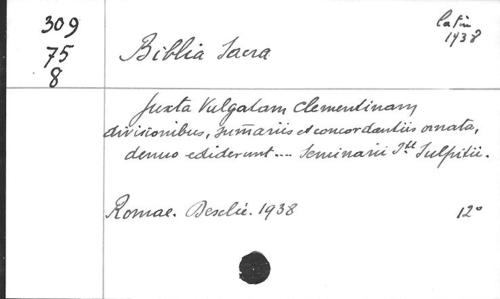 309
75
8
latin
1938
Biblia Sacra
juxta Vulgatam Clementinam
divisionibus, summariis et concordantiis ornata,
denuo ediderunt .... Seminarii Sti Sulpitii.
Romae. Desclée. 1938
12°